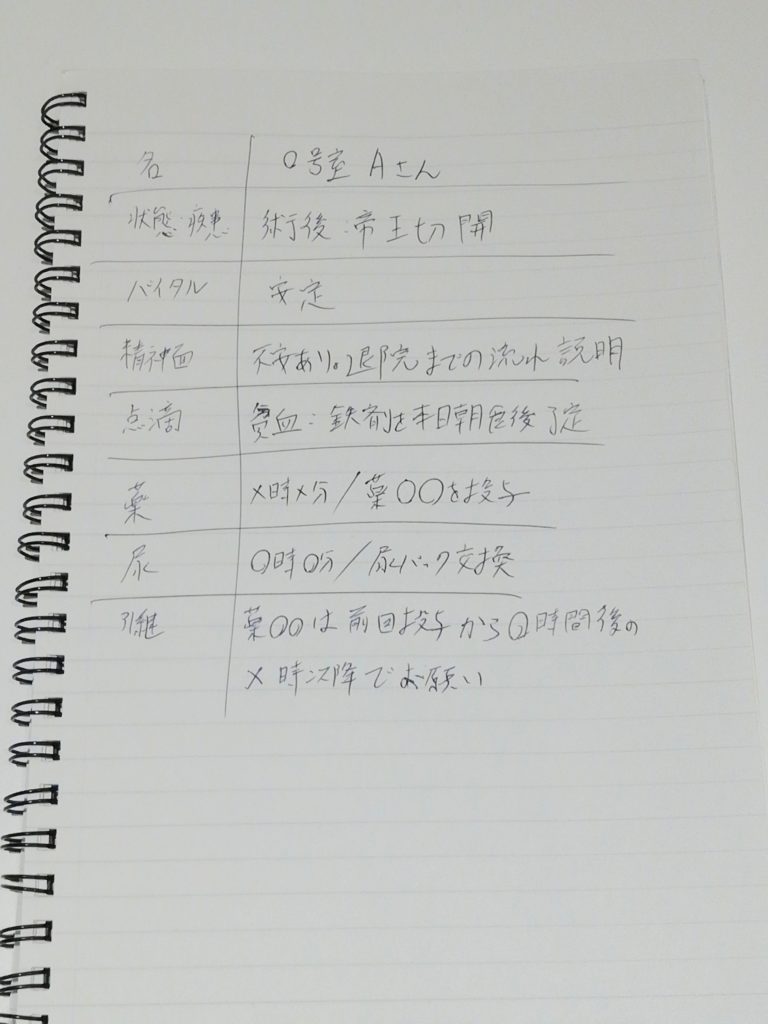 名 〇号室 Aさん
状態・疾患 術後:帝王切開
バイタル 安定
精神面 不安あり。退院までの流れ説明
点滴 貧血:鉄剤を本日朝食後予定
薬 ×時×分/薬〇〇を投与
尿 〇時〇分/尿バック交換
引継 薬〇〇は前回投与から〇時間後の
×時以降でお願い